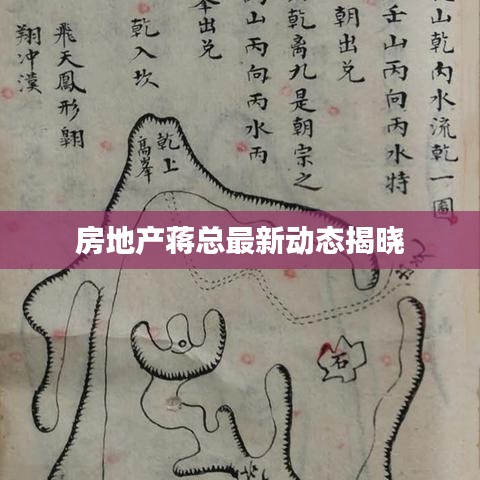 山乾内水流乾一圖
壬山丙向丙水特
朝出兑
乾離九是朝宗之
山丙向丙水丙
出兑
乾入坎
飛天鳳形翱
翔冲漠
乾上
高峯
房地产蒋总最新动态揭晓
石